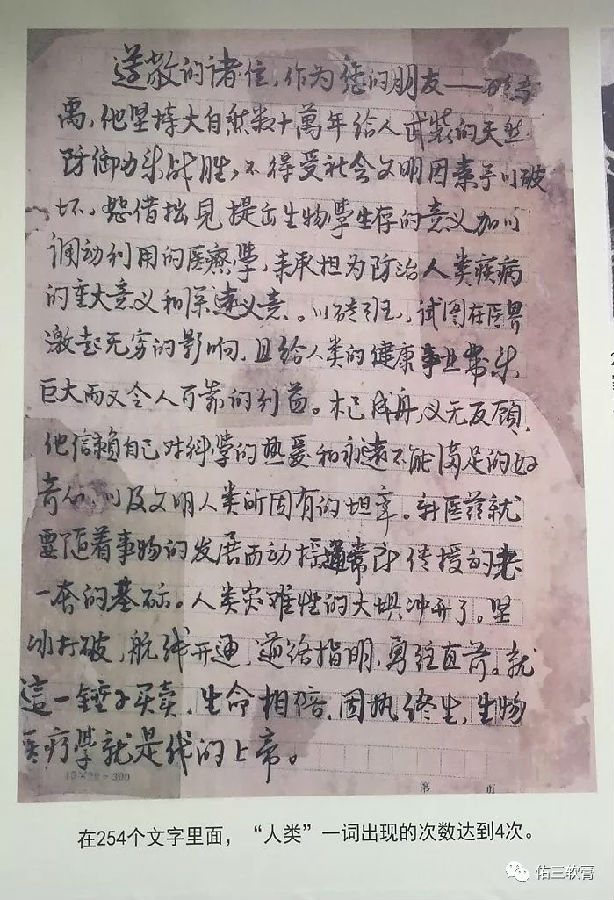 道敬的诸位，作为您的朋友——
禹，他坚持大自然数十萬年给人武装的天然
防御力来战胜，不得受社会文明因素予以破
坏。恕借拙見提出生物學生存的意义加以
调动利用的医療學，来承担为防治人类疾病
的重大意义和深遠义意。以 班，试图在医界
激起无穷的影响，且给人类的健康事业帶来
巨大而又令人可靠的利益。木已成舟，义无反顾，
他信赖自己对科學的热爱和永遠不能满足的好
奇心，以及文明人类所固有的坦率。新医药就
要随着事物的发展而动摇通常所传授的老
一套的基础。人类灾难性的大坝冲开了。坚
冰打破，航线开通，道路指明，勇往直前。就
這一锤子买卖，生命相陪，固执终生，生物
医疗學就是我的上帝。
第 页
在254个文字里面，“人类”一词出现的次数达到4次。
佑三软膏